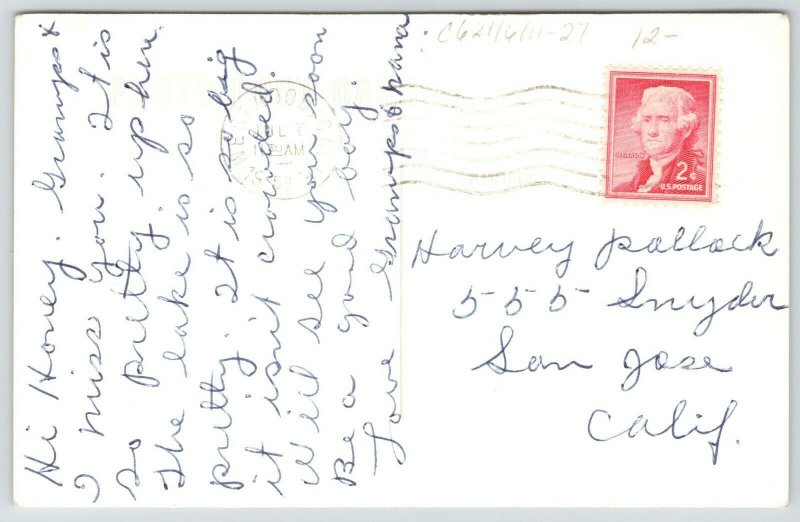 Hi Honey. Gramps &
I miss you. It is
so pretty up here.
The lake is so
pretty. It is so big
it isn't crowded.
We'll see you soon
Be a good boy.
Love Gramps & nana
C621/6/11-27 12-
JUL 7
AM
JEFFERSON
2¢
U.S. POSTAGE
Harvey Pollock
555 Snyder
San Jose
Calif.